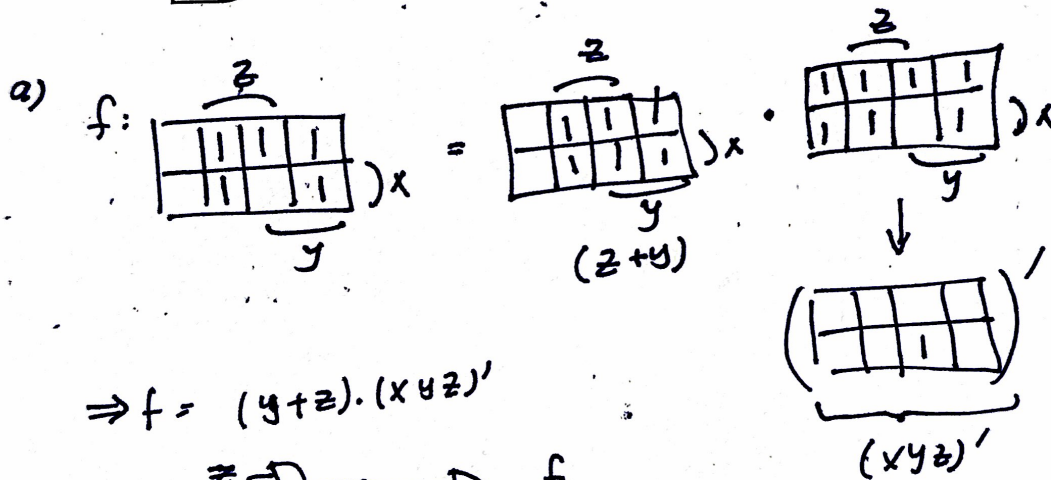 a) f:
z
1 1 1
1 1
) x
y
=
z
1 1 1
1 1 1
) x
y
(z + y)
·
z
1 1 1 1
1 1 1
) x
y
↓
( 1 )'
(xyz)'
⇒ f = (y+z).(xyz)'
z f